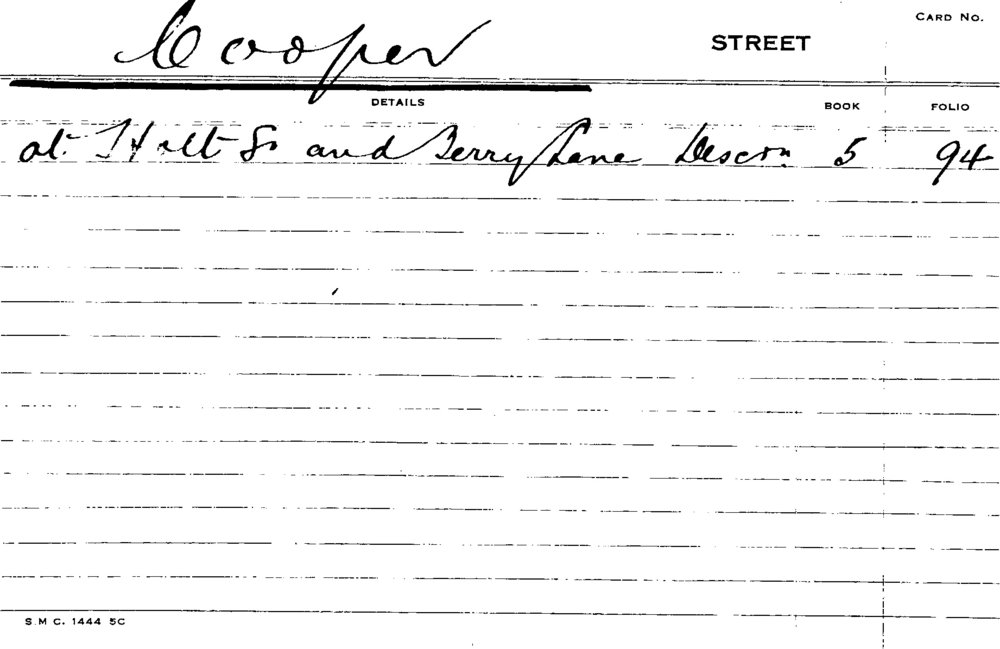 Cooper STREET CARD No.
DETAILS BOOK FOLIO
at Holt St and Terry Lane Descrn 5 94
S.M C. 1444 5C